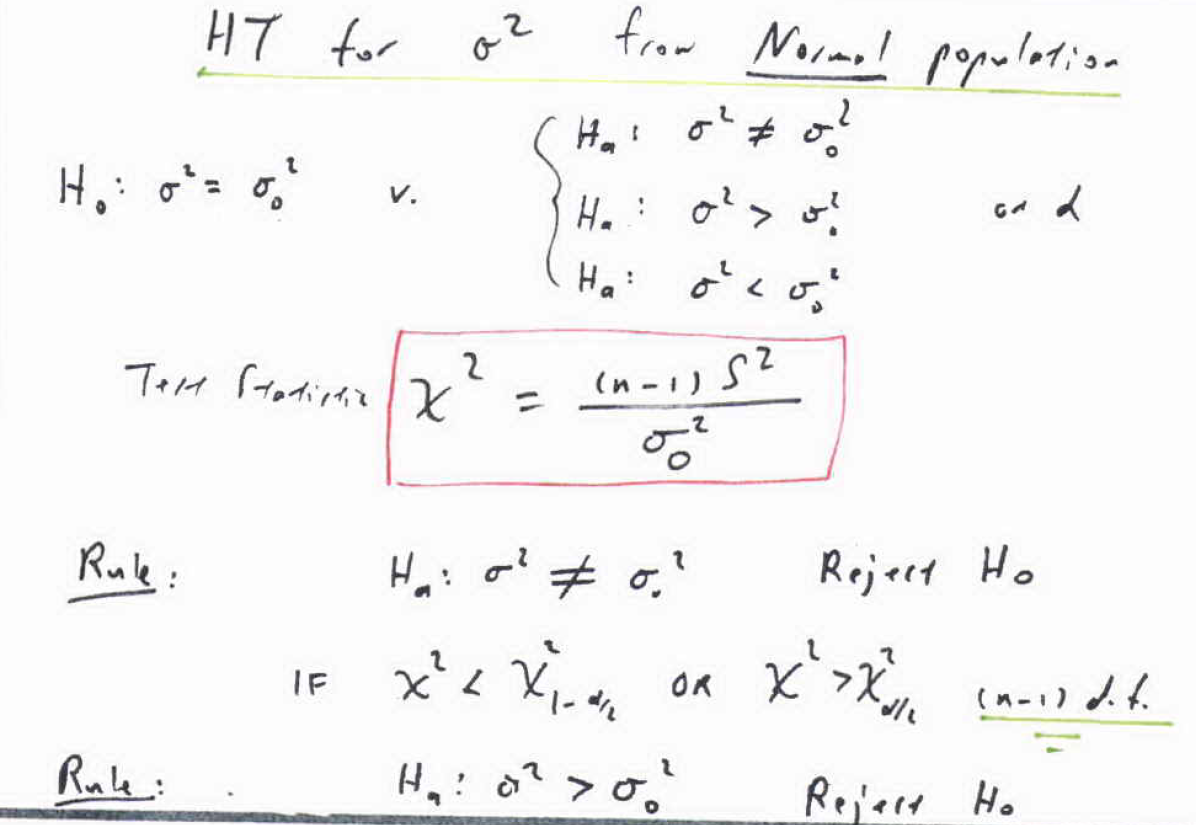 HT for σ² from Normal population
Hₐ: σ² ≠ σ₀²
H₀: σ² = σ₀² v. Hₐ: σ² > σ₀² and
Hₐ: σ² < σ₀²
Test Statistic χ² = (n-1) S² / σ₀²
Rule: Hₐ: σ² ≠ σ₀² Reject H₀
IF χ² < χ²_{1-α/2} OR χ² > χ²_{α/2} (n-1) d.f.
Rule: Hₐ: σ² > σ₀² Reject H₀